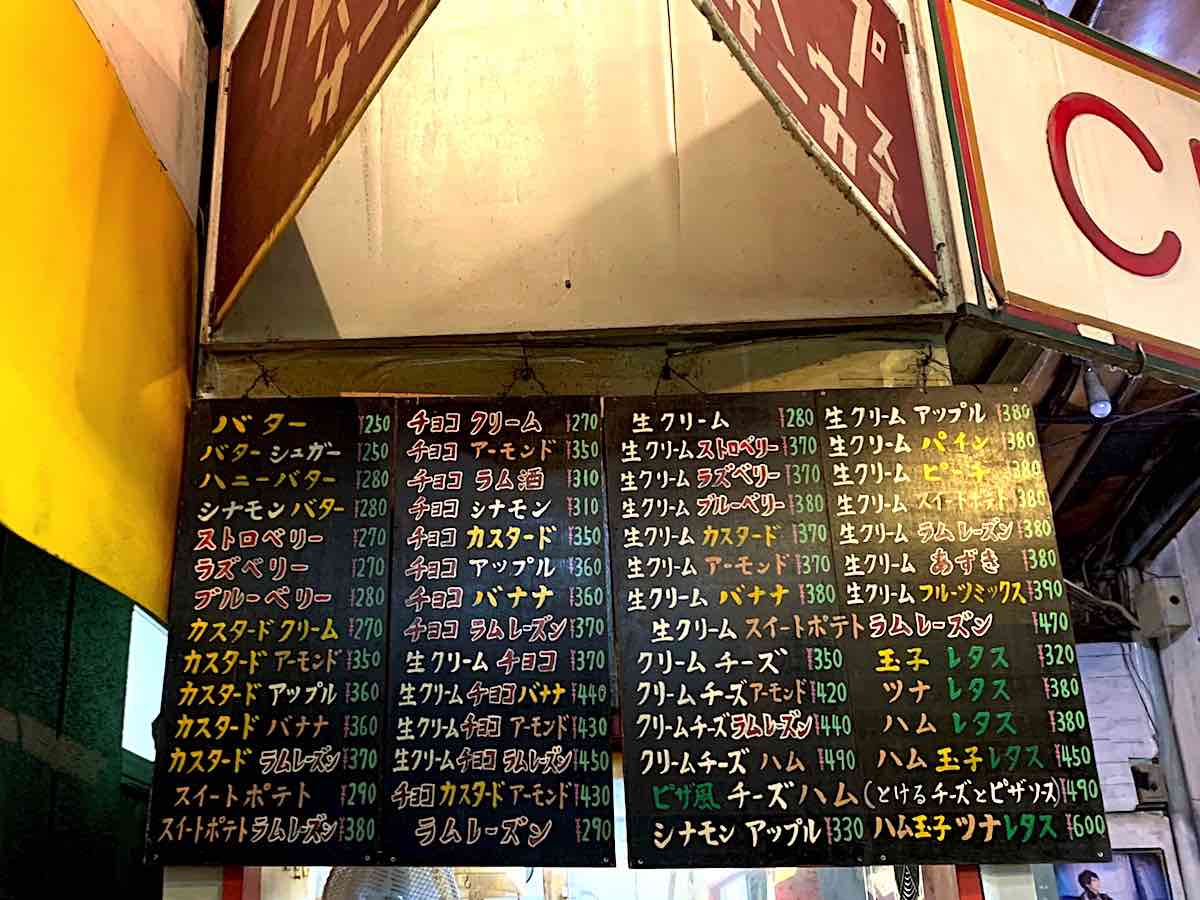 C
バター ¥250
バターシュガー ¥250
ハニーバター ¥280
シナモンバター ¥280
ストロベリー ¥270
ラズベリー ¥270
ブルーベリー ¥280
カスタードクリーム ¥270
カスタード アーモンド ¥350
カスタード アップル ¥360
カスタード バナナ ¥360
カスタード ラムレーズン ¥370
スイートポテト ¥290
スイートポテトラムレーズン ¥380
チョコ クリーム ¥270
チョコ アーモンド ¥350
チョコ ラム酒 ¥310
チョコ シナモン ¥310
チョコ カスタード ¥350
チョコ アップル ¥360
チョコ バナナ ¥360
チョコ ラムレーズン ¥370
生クリーム チョコ ¥370
生クリームチョコバナナ ¥440
生クリームチョコ アーモンド ¥430
生クリームチョコ ラムレーズン ¥450
チョコカスタードアーモンド ¥430
ラムレーズン ¥290
生クリーム ¥280
生クリームストロベリー ¥370
生クリームラズベリー ¥370
生クリームブルーベリー ¥380
生クリームカスタード ¥370
生クリームアーモンド ¥370
生クリーム バナナ ¥380
生クリーム アップル ¥380
生クリーム パイン ¥380
生クリーム ピーチ ¥380
生クリーム スイートポテト ¥380
生クリーム ラムレーズン ¥380
生クリーム あずき ¥380
生クリームフルーツミックス ¥390
生クリームスイートポテトラムレーズン ¥470
クリームチーズ ¥350
クリームチーズアーモンド ¥420
クリームチーズラムレーズン ¥440
クリームチーズ ハム ¥490
玉子 レタス ¥320
ツナ レタス ¥380
ハム レタス ¥380
ハム玉子レタス ¥450
ピザ風チーズハム(とけるチーズとピザソース) ¥490
シナモン アップル ¥330
ハム玉子ツナレタス ¥600